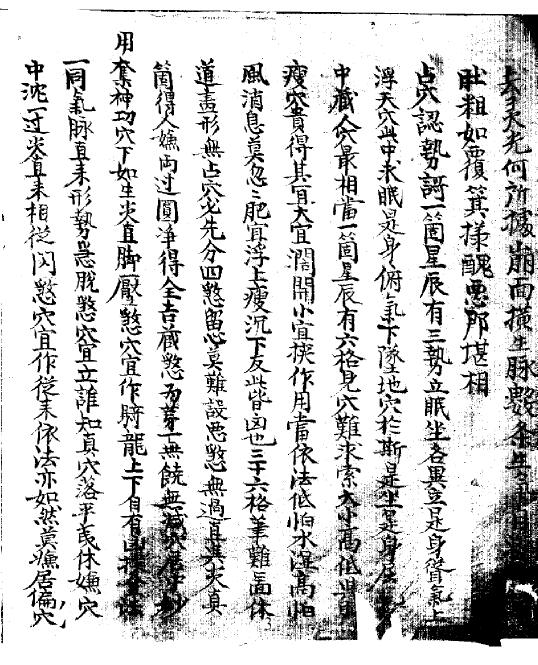 何所據崩面橫生脉數条生
肚粗如覆箕樣醜惡那堪相
占穴認勢訶一箇星辰有三勢立眠坐各異立是身聳氣上
浮天穴此中求眠是身俯氣下墜地穴於斯是坐是身屈
中藏人穴最相當一箇星辰有六格見穴難求索大小高低
瘦穴貴得其宜大宜濶開小宜挨作用當依法低怕水濕高怕
風消息莫忽〻肥宜浮上瘦沉下反此皆凶也三十六格筆難畫休
道盡形無占穴必先分四煞留心莫難設惡煞無過直與尖真
箇得人嫌両边圓淨得全吉藏煞為穴無饒無減穴居中
用奪神功穴下如生尖直脚壓煞穴宜作騎龍上下自有
一同氣脉直来形勢急脫煞穴宜立誰知真穴落平夷休嫌穴
中沈一边尖直来相從閃煞穴宜作從来依法亦如然莫嫌居偏穴